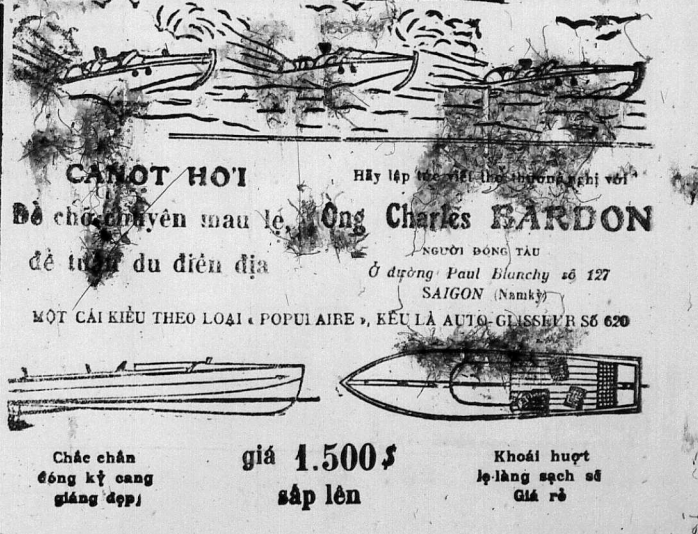 CANOT HƠI
Để chở chuyên mau lẹ,
để tuần du điền địa
Hãy lập tức viết thơ thương nghị với
Ông Charles BARDON
NGƯỜI ĐÓNG TÀU
Ở đường Paul Blanchy số 127
SAIGON (Namkỳ)
MỘT CÁI KIỂU THEO LOẠI « POPULAIRE », KÊU LÀ AUTO-GLISSEUR Số 620
Chắc chắn
đóng kỹ cang
giáng đẹp;
giá 1.500$
sắp lên
Khoái huợt
lẹ-làng sạch sẽ
Giá rẻ